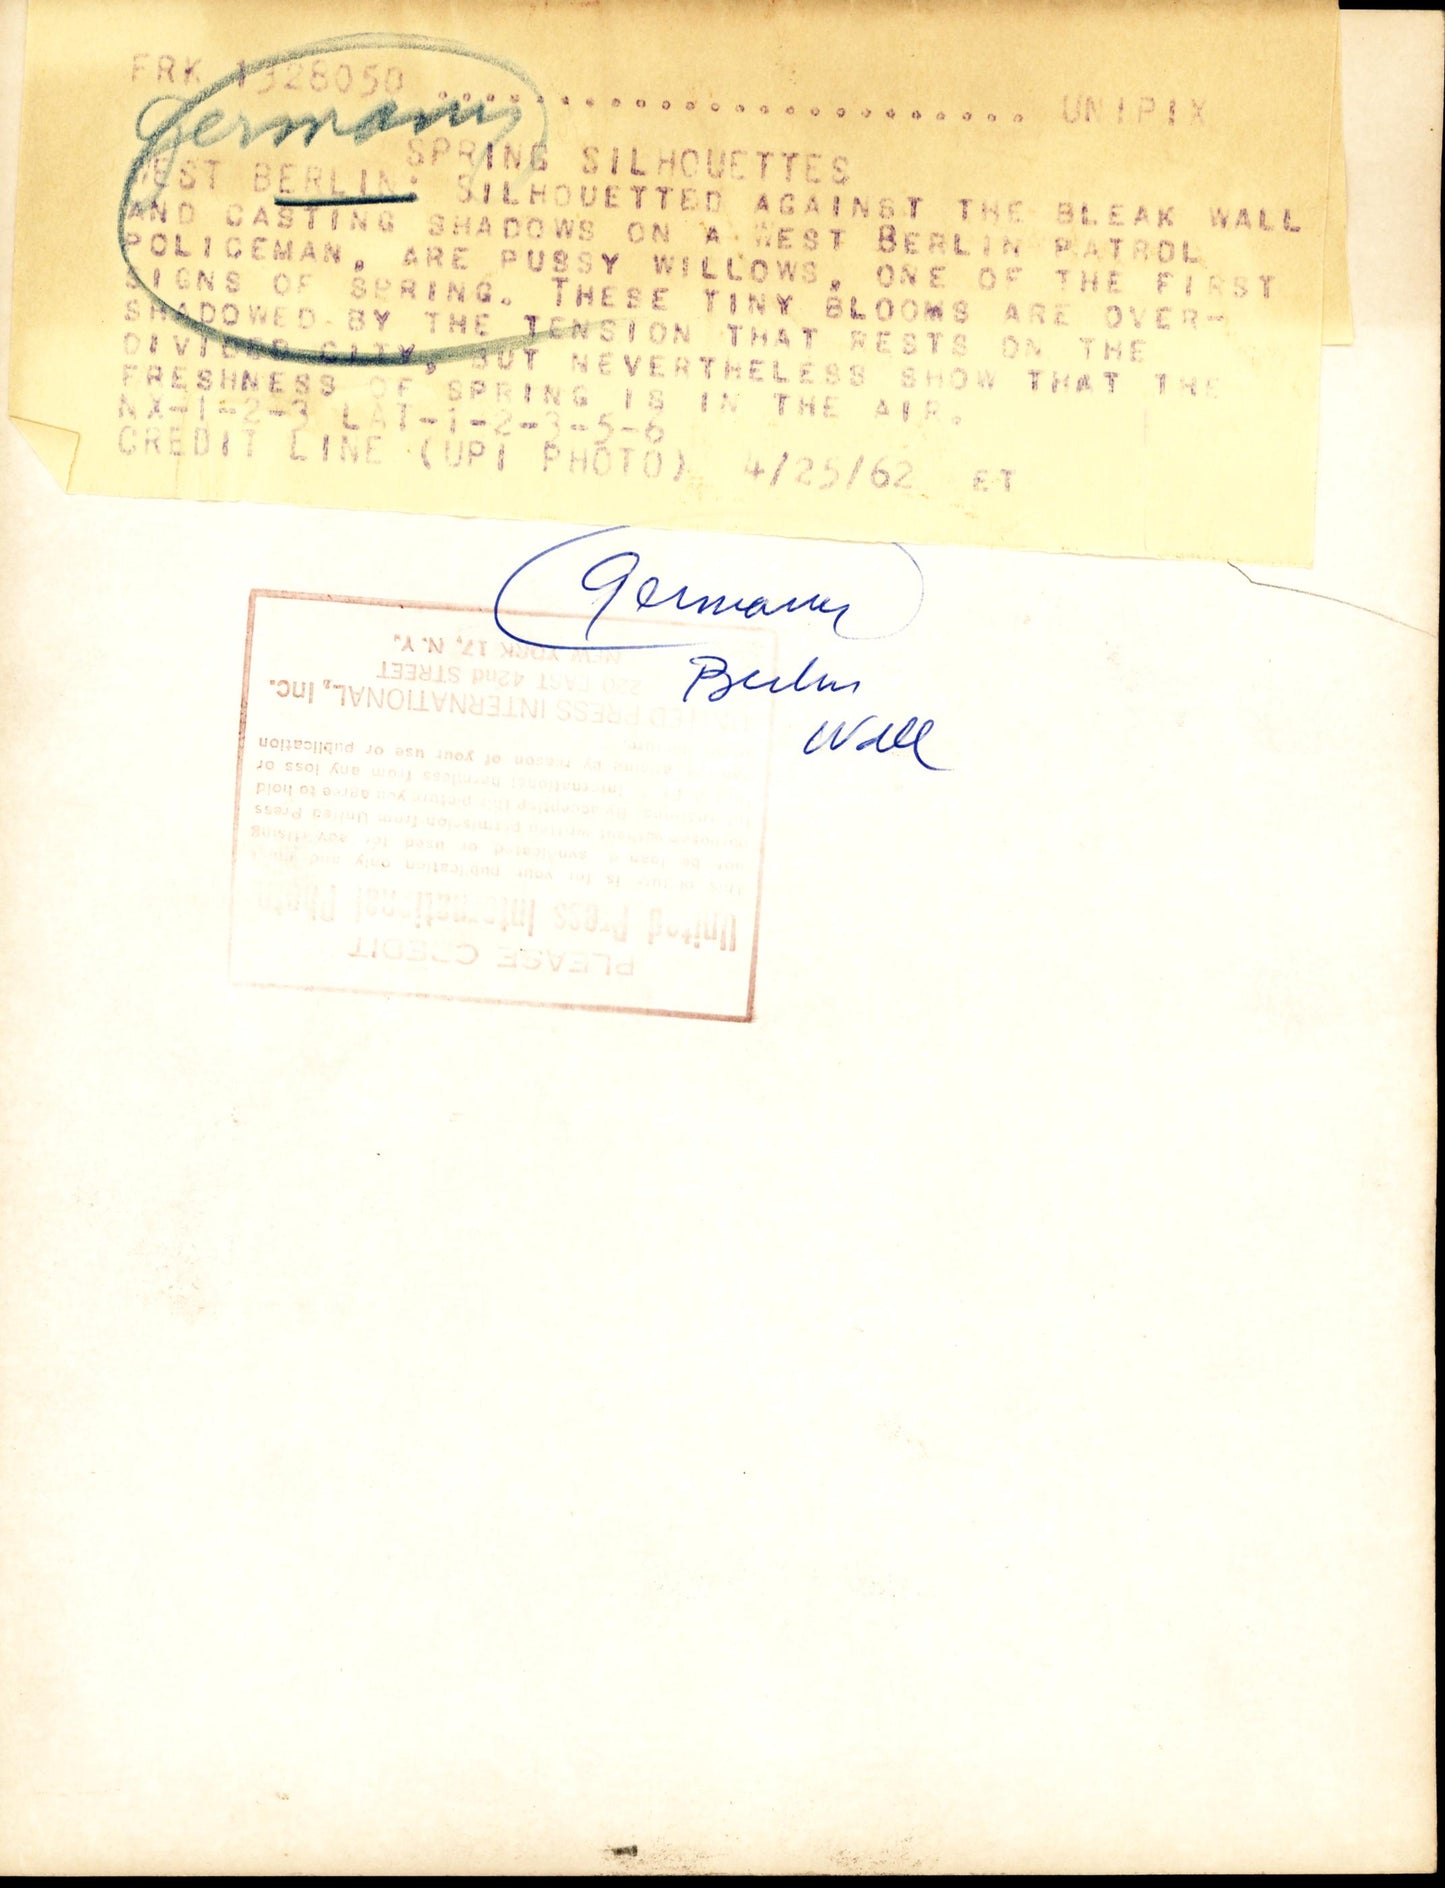 FRK 1328050 .............................. UNIPIX
Germany
SPRING SILHOUETTES
WEST BERLIN: SILHOUETTED AGAINST THE BLEAK WALL
AND CASTING SHADOWS ON A WEST BERLIN PATROL
POLICEMAN, ARE PUSSY WILLOWS, ONE OF THE FIRST
SIGNS OF SPRING. THESE TINY BLOOMS ARE OVER-
SHADOWED BY THE TENSION THAT RESTS ON THE
DIVIDED CITY, BUT NEVERTHELESS SHOW THAT THE
FRESHNESS OF SPRING IS IN THE AIR.
NX-1-2-3 LAT-1-2-3-5-6
CREDIT LINE (UPI PHOTO) 4/25/62 ET
Germany
Berlin
Wall
PLEASE CREDIT
United Press International Photo
this picture is for your publication only and must
not be loan'd, syndicated or used for advertising
purposes without written permission from United Press
International. By accepting this picture you agree to hold
International harmless from any loss or
by reason of your use or publication
UNITED PRESS INTERNATIONAL, Inc.
220 EAST 42nd STREET
NEW YORK 17, N. Y.